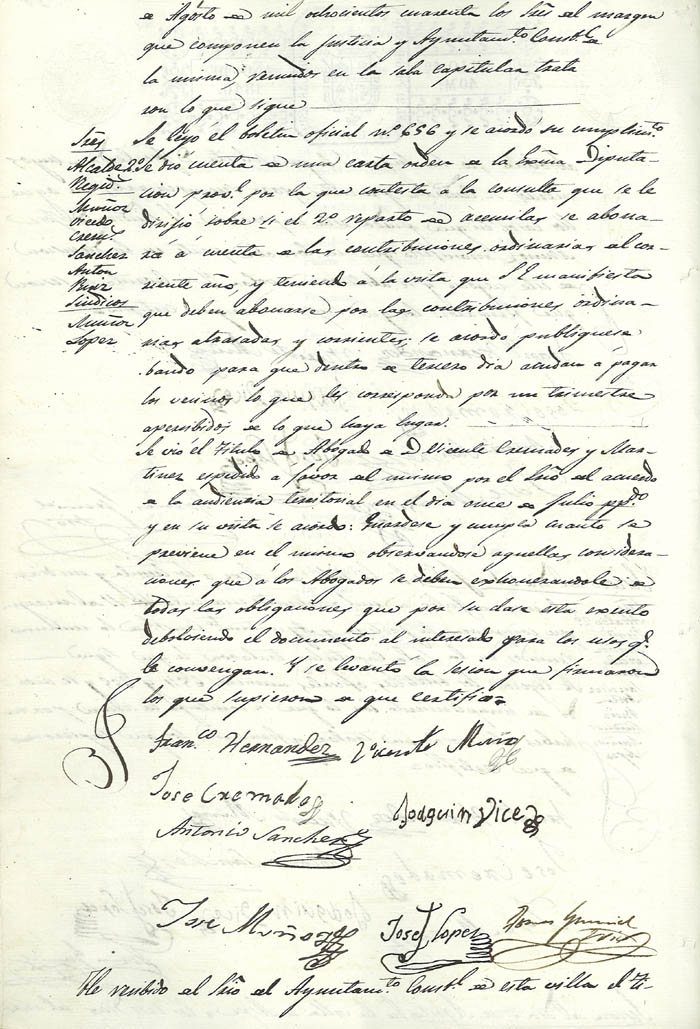 de Agosto de mil ochocientos cuarenta los Sres del margen
que componen la Justicia y Ayuntamto Constl de
la misma, reunidos en la sala capitular trata
ron lo que sigue
Sres
Alcalde 2o
Regidr
Muñoz
Vicedo
Crems
Sanchez
Anton
Ruiz
Sindicos
Muñoz
Lopez
Se leyó el boletin oficial no 656 y se acordó su cumplimto
Se dio cuenta de una carta orden de la Exma Diputa-
cion provl por la que contesta á la consulta que se le
dirijió sobre si el 2o reparto de acemilas se abona-
rá á cuenta de las contribuciones ordinarias del cor-
riente año, y teniendo á la vista que S E manifiesta
que deben abonarse por las contribuciones ordina-
rias atrasadas y corrientes; se acordo publiquese
bando para que dentro de tercero dia acudan á pagar
los vecinos lo que les corresponda por un trimestre
apercibidos de lo que haya lugar.
Se vió el Titulo de Abogado de D Vicente Cremades y Mar-
tinez espedido a favor del mismo por el Srio del acuerdo
de la audiencia territorial en el dia once de Julio ppdo
y en su vista se acordo: Guardese y cumpla cuanto se
previene en el mismo observandose aquellas considera-
ciones que á los Abogados se deben exhonerandole de
todas las obligaciones que por su clase esta exento
debolbiendo el documento al interesado para los usos q.
le convengan. Y se levantó la sesion que firmaron
los que supieron de que certifico=
Franco Hernandez
Vicente Muñoz
Jose Cremades
Joaquin Vicedo
Antonio Sanchez
Jose Muñoz
Jose Lopez
He recibido del Srio del Ayuntamto Constl de esta villa el Ti-